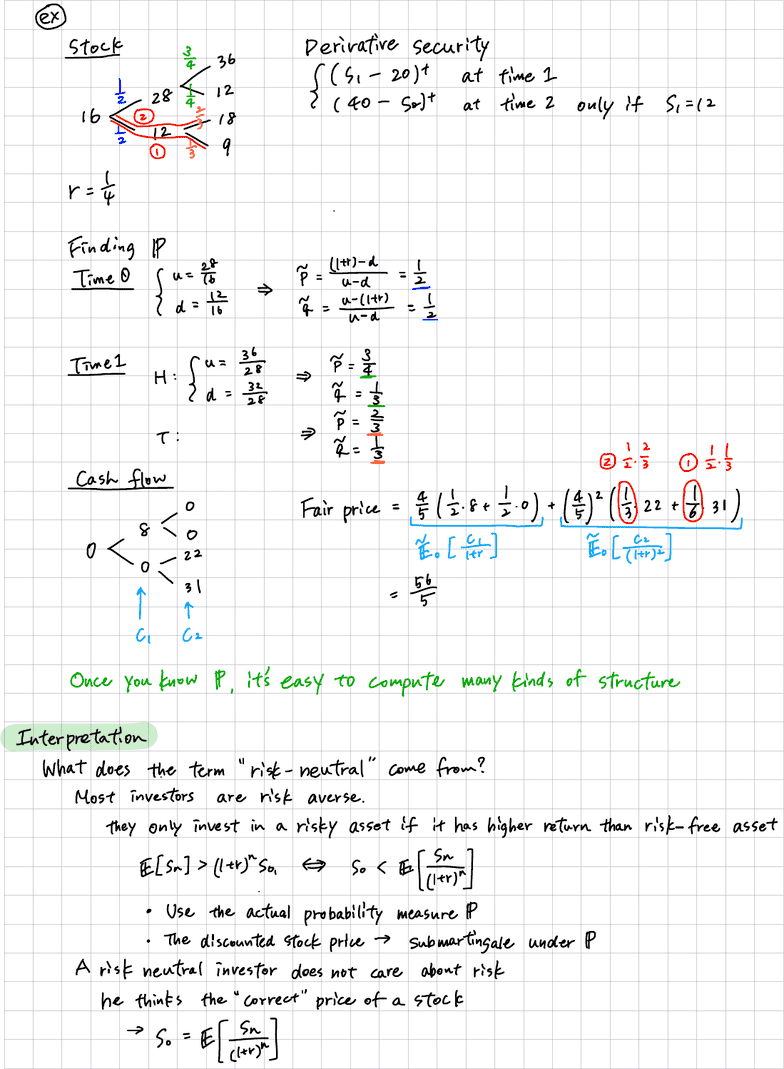 ex
Stock
16
1/2
1/2
28
12
3/4
1/4
2/3
1/3
36
12
18
9
②
①
r = 1/4
Derivative security
{ (S₁ - 20)⁺ at time 1
(40 - S₂)⁺ at time 2 only if S₁=12
Finding ℙ
Time 0 { u = 28/16 ⇒ p̃ = ((1+r)-d)/(u-d) = 1/2
d = 12/16 q̃ = (u-(1+r))/(u-d) = 1/2
Time 1 H: { u = 36/28 ⇒ p̃ = 3/4
d = 32/28 q̃ = 1/3
T: ⇒ p̃ = 2/3
q̃ = 1/3
Cash flow
0
8
0
0
0
22
31
C₁ C₂
② 1/2 · 2/3 ① 1/2 · 1/3
Fair price = 4/5 (1/2 · 8 + 1/2 · 0) + (4/5)² (1/3 22 + 1/6 31)
Ẽ₀[C₁/(1+r)] Ẽ₀[C₂/(1+r)²]
= 56/5
Once you know ℙ, it's easy to compute many kinds of structure
Interpretation
What does the term "risk-neutral" come from?
Most investors are risk averse.
they only invest in a risky asset if it has higher return than risk-free asset
𝔼[Sn] > (1+r)ⁿ S₀, ⇔ S₀ < 𝔼[Sn/(1+r)ⁿ]
· Use the actual probability measure ℙ
· The discounted stock price → submartingale under ℙ
A risk neutral investor does not care about risk
he thinks the "correct" price of a stock
→ S₀ = 𝔼[Sn/(1+r)ⁿ]